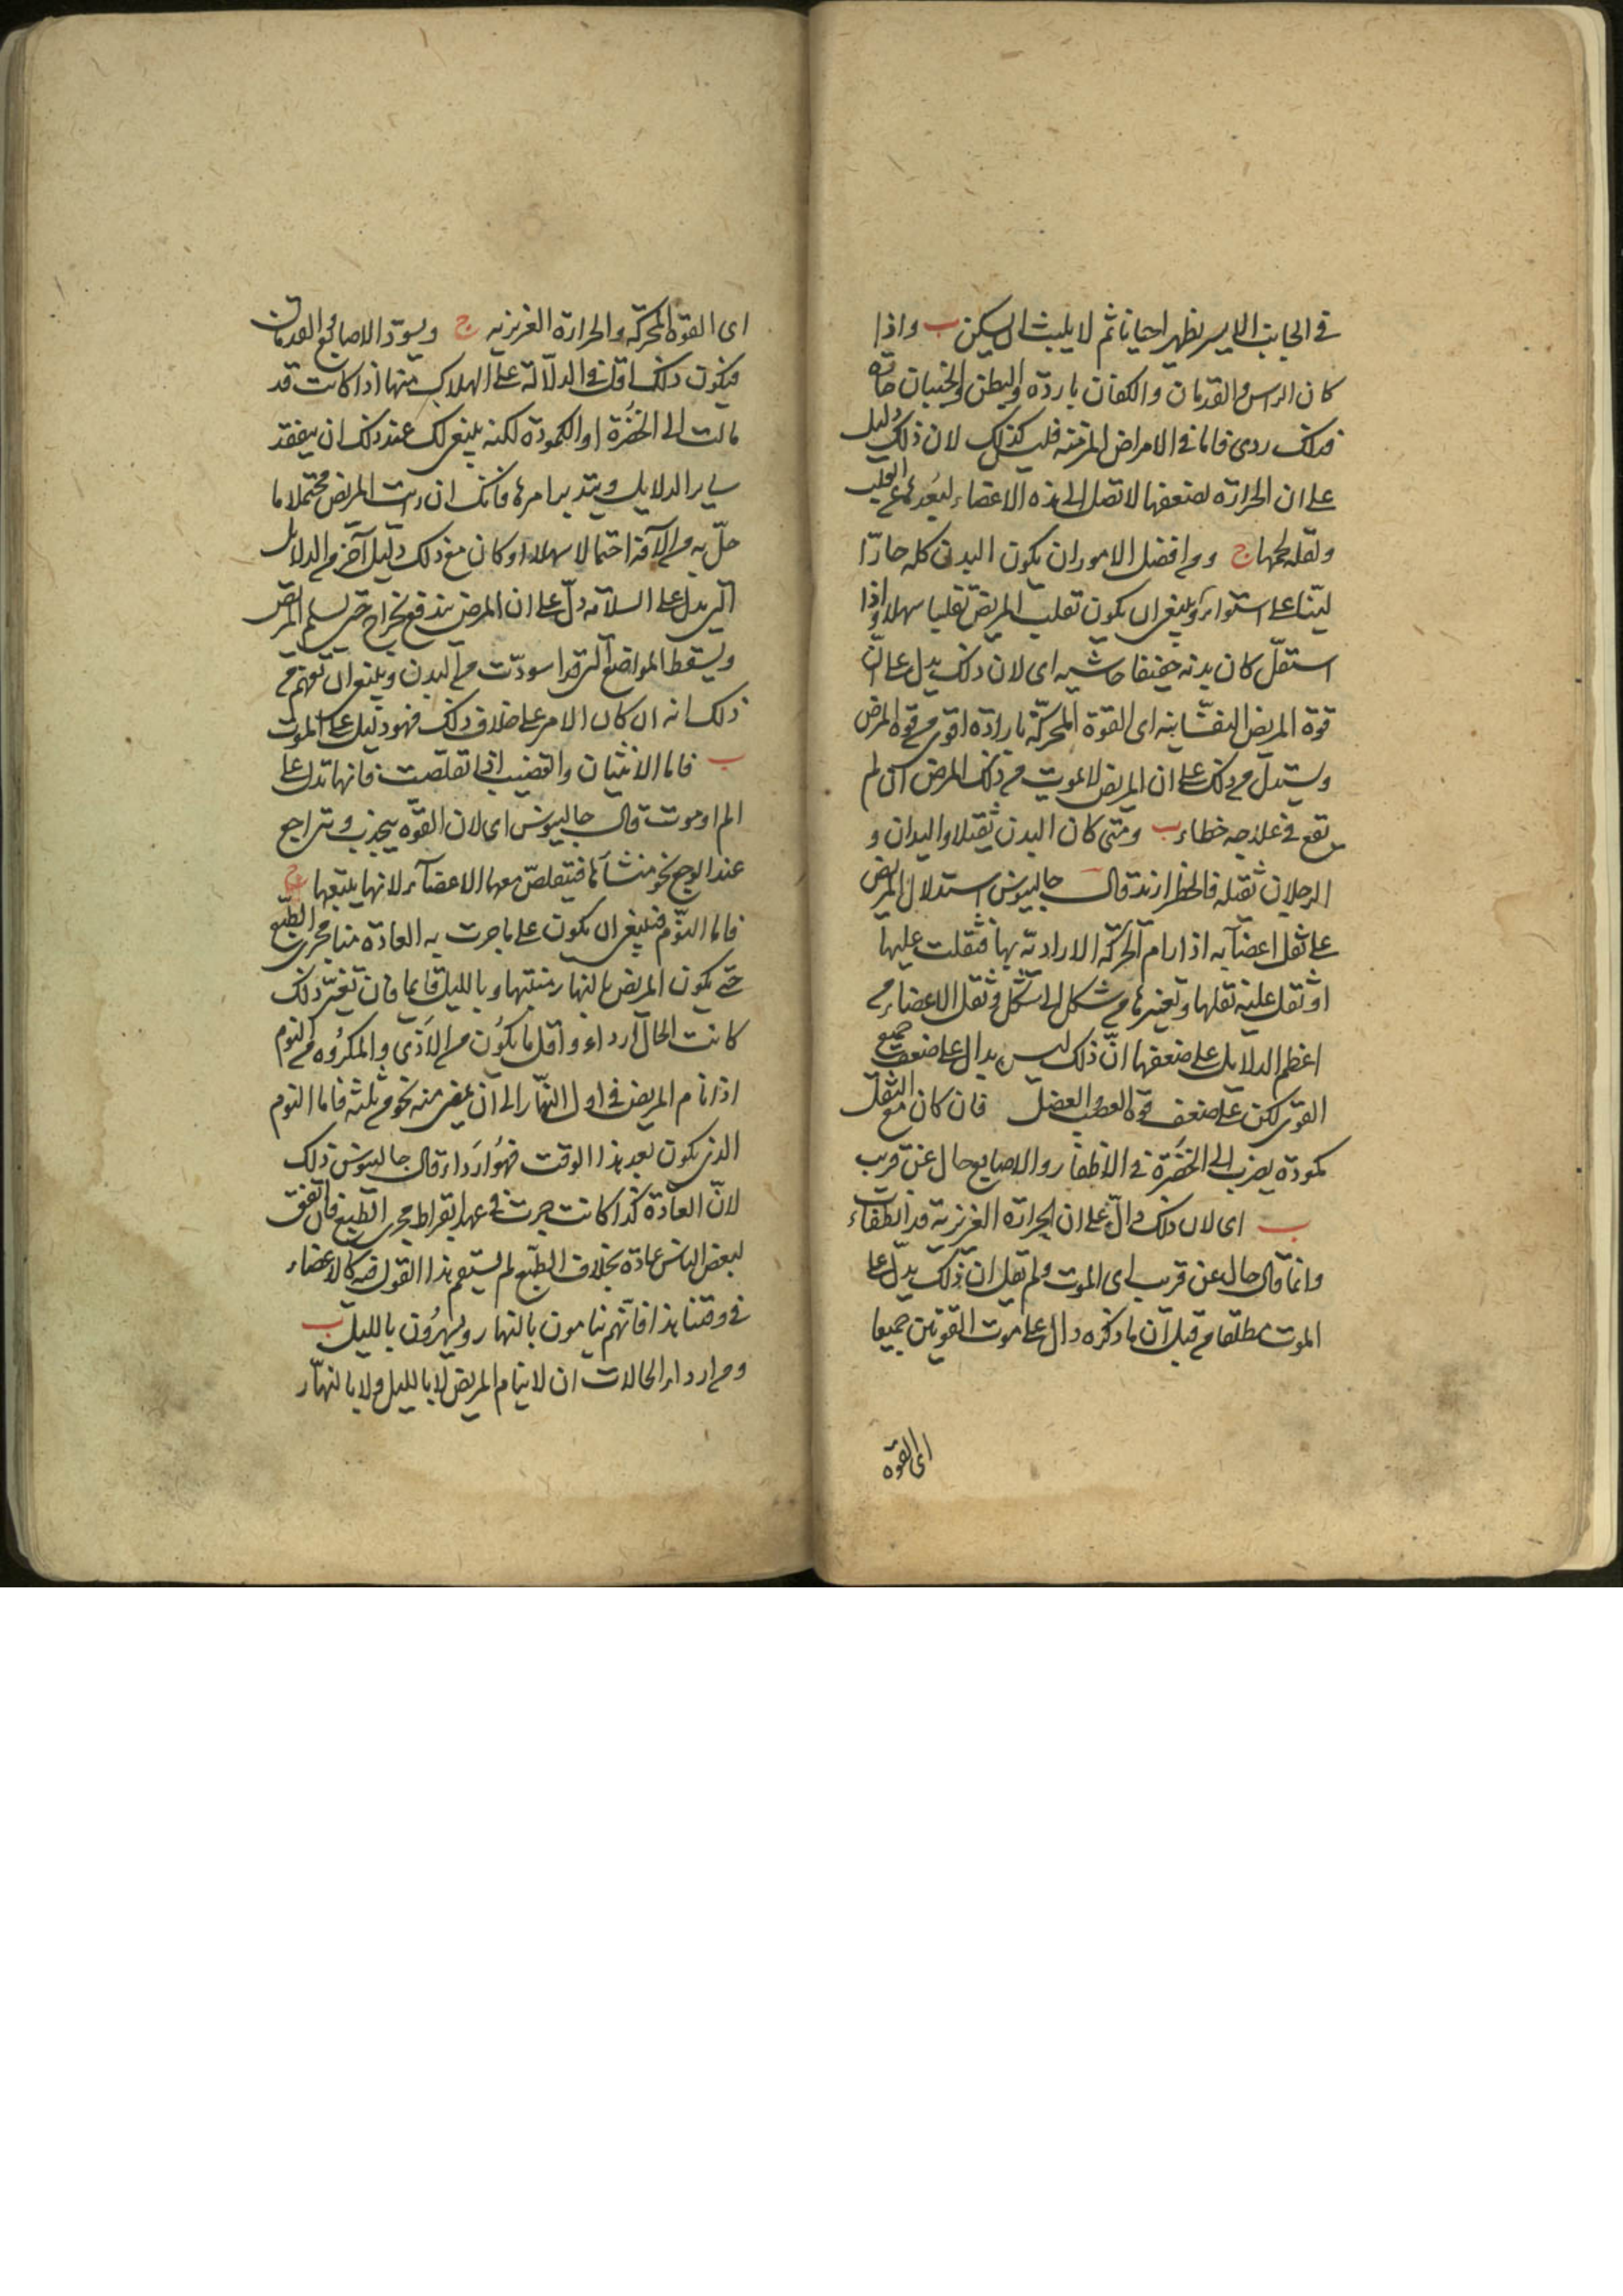 في الجانب الايسر يظهر احيانا ثم لا يلبث ان يسكن ب واذا
كان الراس والقدمان والكفان باردة والبطن والجنبان حارة
فذلك ردى فاما في الامراض المزمنة فليس كذلك لان ذلك دليل
على ان الحرارة لضعفها لا تصل الى هذه الاعضاء لبعدها عن القلب
ولقلة لحمها ج ومن افضل الامور ان يكون البدن كله حارّا
ليّنا على استواء وينبغي ان يكون تقلب المريض تقلبا سهلا واذا
استقلّ كان بدنه خفيفا حاشيه اى لان ذلك يدل على انّ
قوة المريض النفسانية اى القوة المحركة بارادة اقوى من قوة المرض
ويستدلّ من ذلك على ان المريض لا يموت من ذلك المرض ان لم
يقع في علاجه خطاء ب ومتى كان البدن ثقيلا واليدان و
الرجلان ثقيلة فالخطر ازيد قال جالينوس استدلال المريض
على ثقل اعضآيه اذا رام الحركة الارادية بها فثقلت عليها
او ثقل عليه نقلها وتغيرها من شكل الى شكل وثقل الاعضاء من
اعظم الدلايل على ضعفها انّ ذلك ليس بدال على ضعف جميع
القوى لكن على ضعف قوة العصب والعضل فان كان مع الثقل
كمودة يضرب الى الخضرة في الاظفار والاصابع حال عن قريب
ب اى لان ذلك دالّ على ان الحرارة الغريزية قد انطفات
وانما قال حال عن قريب اى الموت ولم يقل ان ذلك يدلّ على
الموت مطلقا من قبل ان ما ذكره دال على موت القوتين جميعا
اى القوة
اى القوة المحركة والحرارة الغريزيه ج ويسودّ الاصابع والقدمان
فيكون ذلك اقل في الدلالة على الهلاك منها اذا كانت قد
مالت الى الخضرة او الكمودة لكنه ينبغي لك عند ذلك ان يتفقد
ساير الدلايل ويتدبر امرها فانك ان رايت المريض محتملا ما
حلّ به من الآفة احتمالا سهلا او كان مع ذلك دليل آخر من الدلايل
التى يدل على السلامة دلّ على ان المرض يندفع بخراج حتى يسلم المريض
ويسقط المواضع التى قد اسودّت من البدن وينبغي ان تفهم من
ذلك انه ان كان الامر على خلاف ذلك فهو دليل على الموت
ب فاما الانثيان والقضيب اذا تقلصت فانها تدل على
الم او موت قال جالينوس اى لان القوّة ينجذب ويتراجع
عند الوجع نحو منشأها فيتقلصّ معها الاعضآء لانها يتبعها ج
فاما النوّم فينبغي ان يكون على ما جرت به العادة منا مجرى الطبع
حتى يكون المريض بالنهار منتبها وبالليل نايما فان تغيّر ذلك
كانت الحال ارداء واقل ما يكون من الاذى والمكروه من النوم
اذا نام المريض في اول النهار الى ان يمضى منه نحو من ثلثه فاما النوم
الذى يكون بعد هذا الوقت فهو ارداء قال جالينوس ذلك
لانّ العادة كذا كانت جرت في عهد ابقراط مجرى الطبع فان اتفق
لبعض الناس عادة بخلاف الطبع لم يستقم هذا القول فيه كالاعضاء
في وقتنا هذا فانّهم ينامون بالنهار ويسهرون بالليل ب
ومن ارداء الحالات ان لا ينام المريض لا بالليل ولا بالنهّار